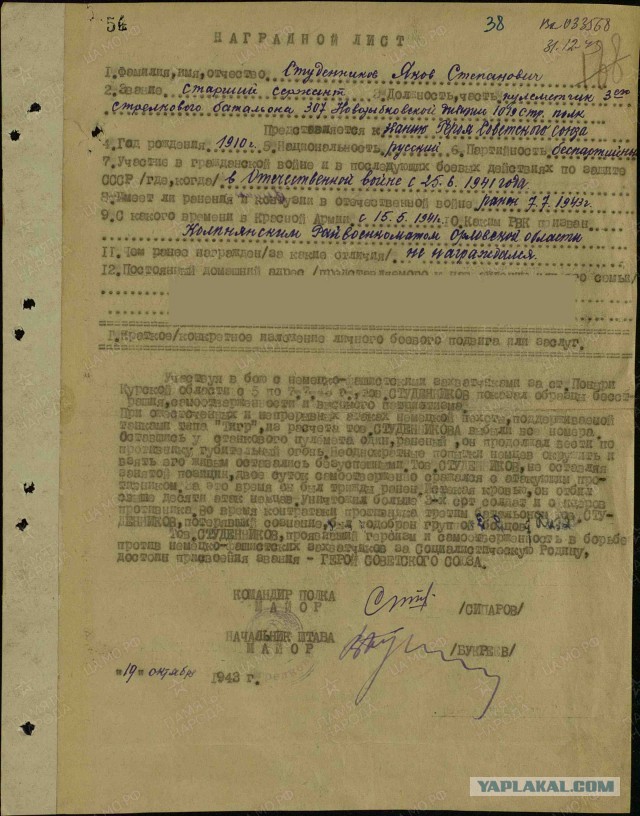 54
38
Вх 033568
31.12.43
НАГРАДНОЙ ЛИСТ
1.Фамилия,имя,отчество Студенников Яков Степанович
2.Звание старший сержент 3.Должность,часть пулеметчик 3его
стрелкового батальона 307 Новозыбковской дивизии 1019 стр. полк
Представляется к званию Героя Советского Союза
4.Год рождения 1910г. 5.Национальность русский 6.Партийность беспартийный
7.Участие в гражданской войне и в последующих боевых действиях по защите
СССР /где,когда/ в Отечественной войне с 25.6.1941 года
8.Имеет ли ранения и контузии в отечественной войне ранен 7.7.1943г.
9.С какого времени в Красной Армии с 15.5.1941г. 10.Каким РВК призван
Колпнянским Райвоенкоматом Орловской области
11.Чем ранее награжден/за какие отличия/ не награждался.
12.Постоянный домашний адрес /представляемого к
семьи/
1.Краткое/конкретное изложение личного боевого подвига или заслуг.
Участвуя в бою с немецко-фашистскими захватчиками за ст.Поныри
Курской области с 5 по тов.СТУДЕННИКОВ показал образцы бесст-
рашия,самоотверженности и высокого патриотизма.
При ожесточенных и непрерывных атаках немецкой пехоты,поддерживаемой
танками типа "Тигр",из расчета тов.СТУДЕННИКОВА выбыли все номера.
Оставшись у станкового пулемета один,раненый,он продолжал вести по
противнику губительный огонь.Неоднократные попытки немцев окружить и
взять его живым оставались безуспешными.Тов.СТУДЕННИКОВ,не оставляя
занятой позиции,двое суток самоотверженно сражался с атакующим про-
тивником.За это время он был трижды ранен.Истекая кровью,он отбил
свыше десяти атак немцев.Уничтожил больше 3-х рот солдат и офицеров
противника.Во время контратаки противника третим батальоном тов.СТУ-
ДЕННИКОВ,потерявший сознание,был подобран группой бойцов
Тов.СТУДЕННИКОВ,проявивший героизм и самоотверженность в борьбе
против немецко-фашистских захватчиков за Социалистическую Родину,
достоин присвоения звания - ГЕРОЙ СОВЕТСКОГО СОЮЗА.
КОМАНДИР ПОЛКА
МАЙОР /СИПАРОВ/
НАЧАЛЬНИК ШТАБА
МАЙОР /БУКРЕЕВ/
"19" октября 1943 г.
YAPLAKAL.COM